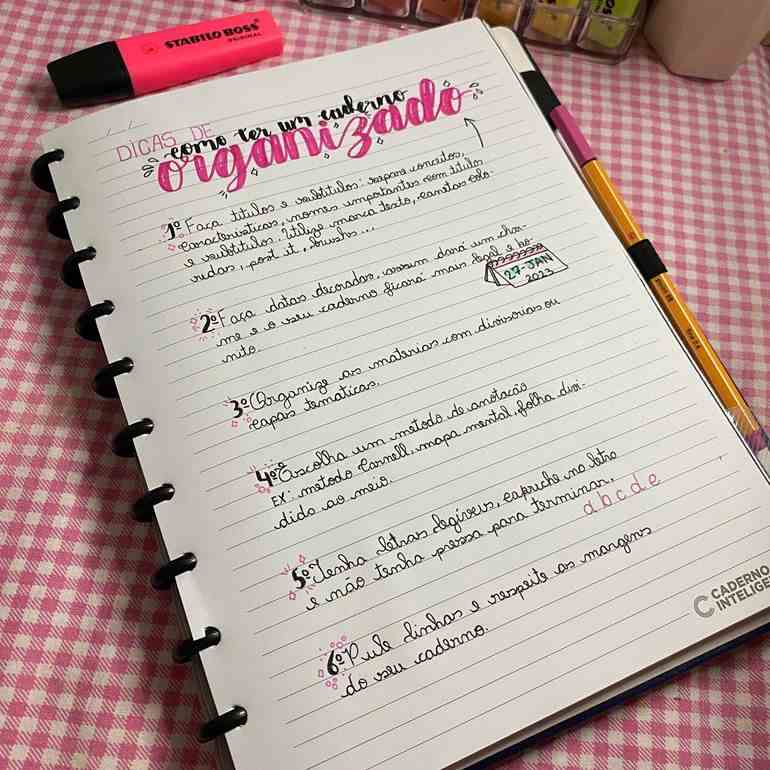 STABILO BOSS
ORIGINAL
DICAS DE
como ter um caderno
organizado
1º Faça titulos e subtitulos: separe conceitos,
caracteristicas, nomes importantes com titulos
e subtitulos. Utilize marca texto, canetas colo-
ridas, post it, brushs...
2º Faça datas decoradas, assim dará um char-
me e o seu caderno ficará mais legal e bo-
nito.
27-JAN
2023
3º Organize as materias com divisorias ou
capas tematicas.
4º Escolha um metodo de anotação
EX: metodo Cornell, mapa mental, folha divi-
dido ao meio.
5º Tenha letras legíveis, capriche na letra
e não tenha pressa para terminar.
a b c d e
6º Pule linhas e respeite as margens
do seu caderno.
CADERNO